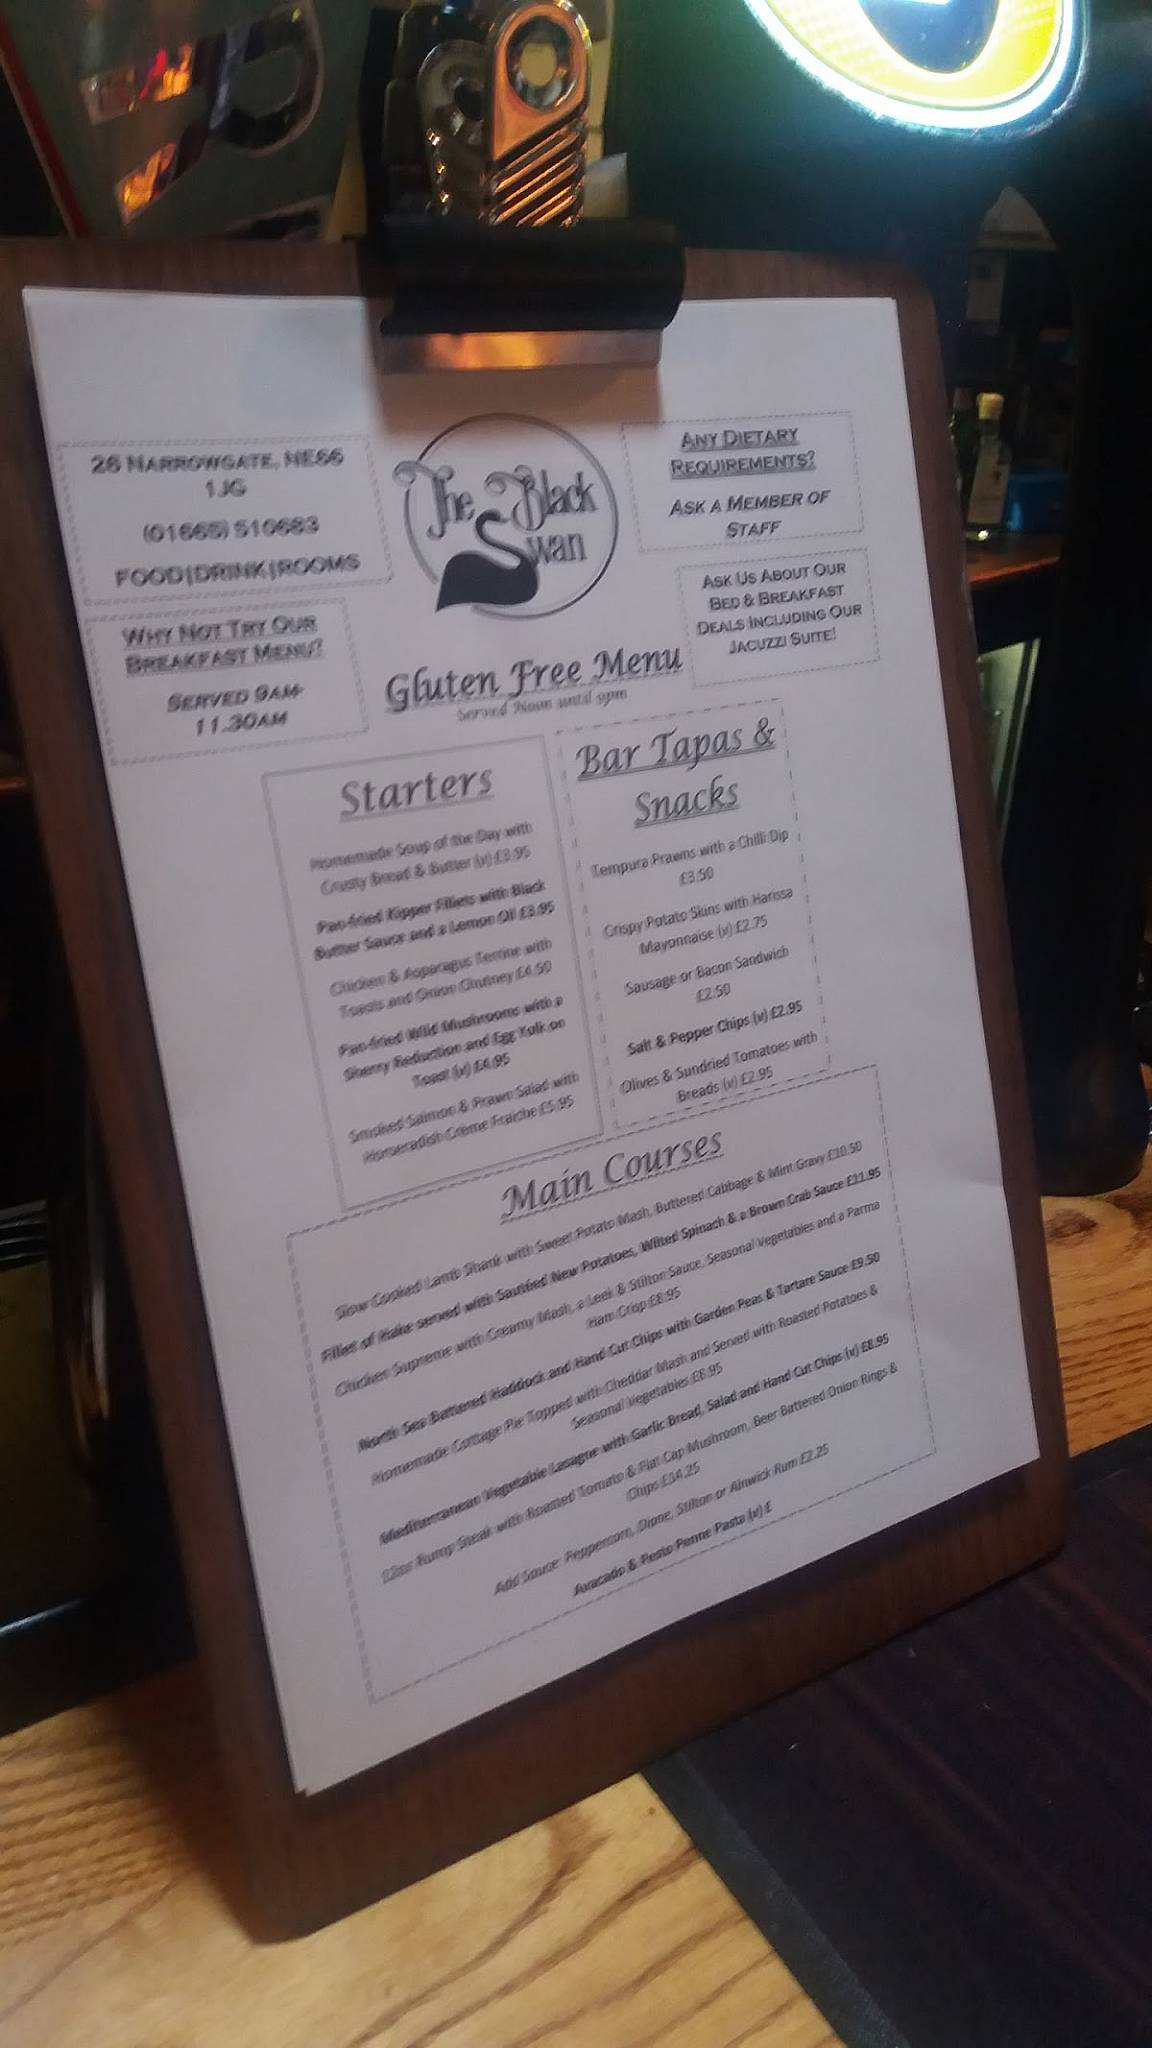 26 Narrowgate, NE66
1JG
(01665) 510683
Food|Drink|Rooms
Why Not Try Our
Breakfast Menu?
Served 9am-
11.30am
The Black
Swan
Any Dietary
Requirements?
Ask a Member of
Staff
Ask Us About Our
Bed & Breakfast
Deals Including Our
Jacuzzi Suite!
Gluten Free Menu
Served Noon until 9pm
Starters
Homemade Soup of the Day with
Crusty Bread & Butter (v) £3.95
Pan-fried Kipper Fillets with Black
Butter Sauce and a Lemon Oil £3.95
Chicken & Asparagus Terrine with
Toasts and Onion Chutney £4.50
Pan-fried Wild Mushrooms with a
Sherry Reduction and Egg Yolk on
Toast (v) £4.95
Smoked Salmon & Prawn Salad with
Horseradish Crème Fraiche £5.95
Bar Tapas &
Snacks
Tempura Prawns with a Chilli Dip
£3.50
Crispy Potato Skins with Harissa
Mayonnaise (v) £2.75
Sausage or Bacon Sandwich
£2.50
Salt & Pepper Chips (v) £2.95
Olives & Sundried Tomatoes with
Breads (v) £2.95
Main Courses
Slow Cooked Lamb Shank with Sweet Potato Mash, Buttered Cabbage & Mint Gravy £10.50
Fillet of Hake served with Sautéed New Potatoes, Wilted Spinach & a Brown Crab Sauce £11.95
Chicken Supreme with Creamy Mash, a Leek & Stilton Sauce, Seasonal Vegetables and a Parma
Ham Crisp £8.95
North Sea Battered Haddock and Hand Cut Chips with Garden Peas & Tartare Sauce £9.50
Homemade Cottage Pie Topped with Cheddar Mash and Served with Roasted Potatoes &
Seasonal Vegetables £8.95
Mediterranean Vegetable Lasagne with Garlic Bread, Salad and Hand Cut Chips (v) £8.95
12oz Rump Steak with Roasted Tomato & Flat Cap Mushroom, Beer Battered Onion Rings &
Chips £14.25
Add Sauce: Peppercorn, Diane, Stilton or Alnwick Rum £2.25
Avacado & Pesto Penne Pasta (v) £